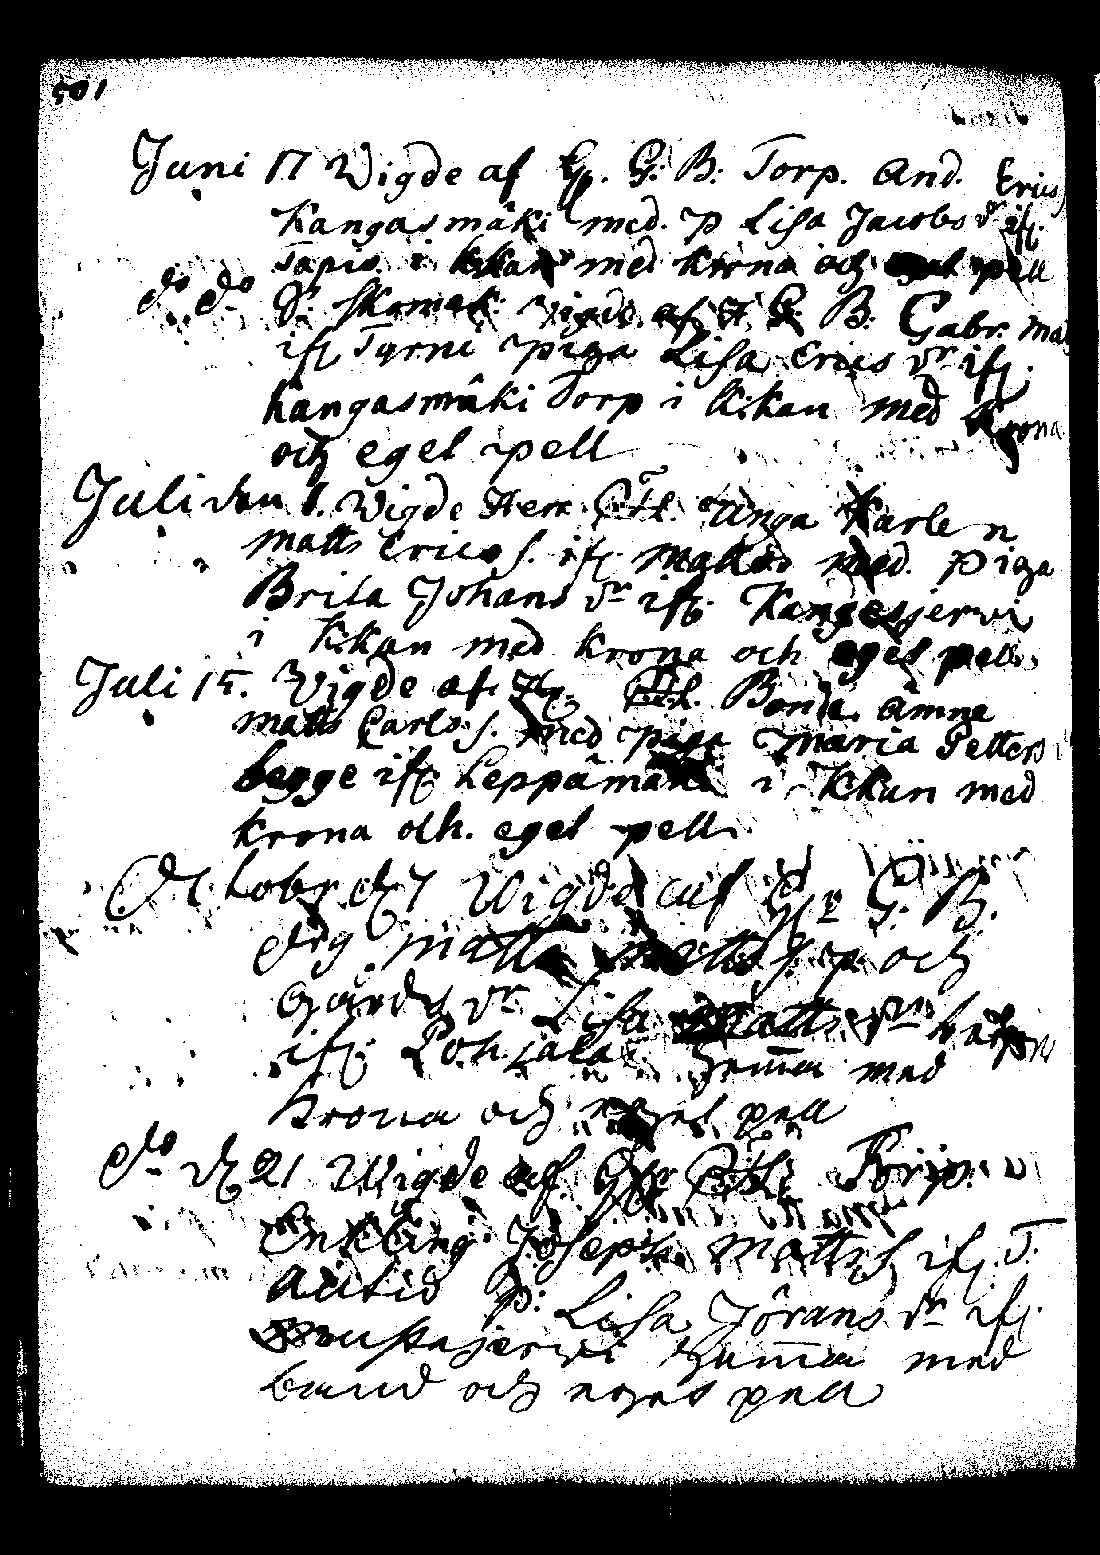 501
Juni 17 Vigde af G. B. Torp. And. Erics
Kangasmäki med. p Lisa Jacobs dr ifr.
Tapio i Kkan med krona och eget pell
do do S. Skomak. Vigde af H G. B. Gabr. Mat
ifr Tyrni piga Lisa Erics dr ifr.
kangasmäki Torp i Kkan med Krona
och eget pell
Juli den 1. Vigde Herr Unga Karlen
matts Erics s. ifr med. Piga
Brita Johans dr ifr. Kangesjervi
i Kkan med krona och eget pell
Juli 15. Vigde af Hr. Bonde ämne
matts Carls s. med piga Maria Petters
begge ifr Leppämäki i Kkan med
krona och. eget pell.
Octobr d. 7 Wigde af Hr G. B.
drg Matts Matts s. p och
Gårds dr Lisa Matts dr
ifr. Pohjala hemma med
Krona och eget pell
do d. 21 Wigde af Hr Torp.
Enkling Joseph Matts s ifr. T.
Autio P: Lisa Jörans dr ifr.
Mustajervi hemma med
band och eget pell